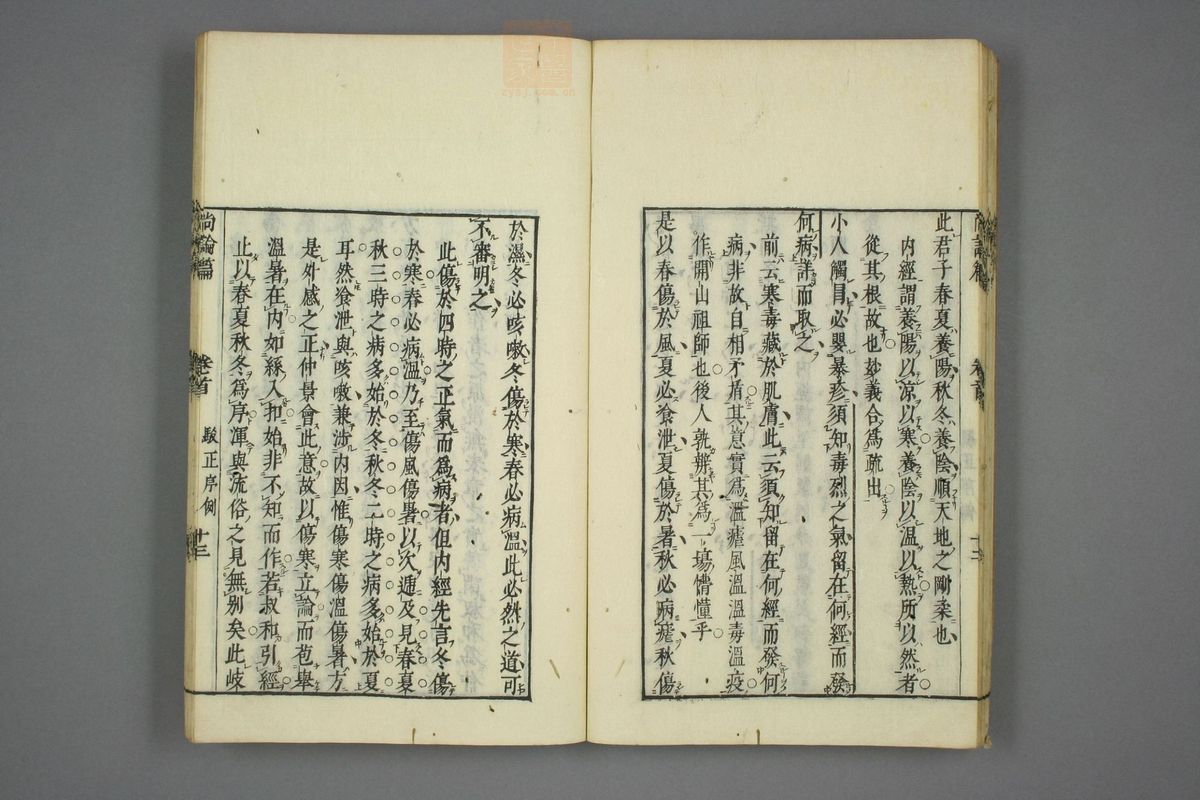 此君子春夏養陽秋冬養陰順天地之剛柔也
内經謂養陽以涼以寒養陰以温以熱所以然者
從其根故也妙義合爲疏出
小人觸冒必嬰暴疹須知毒烈之氣留在何經而發
何病詳而取之
前云寒毒藏於肌膚此云須知留在何經而發何
病非故自相矛盾其意實爲溫瘧風溫溫毒溫疫
作開山祖師也後人孰辨其爲一場懵懂乎
是以春傷於風夏必飧泄夏傷於暑秋必病瘧秋傷
於濕冬必咳嗽冬傷於寒春必病溫此必然之道可
不審明之
此傷於四時之正氣而爲病者但内經先言冬傷
於寒春必病溫乃至傷風傷暑以次遞及見春夏
秋三時之病多始於冬秋冬二時之病多始於夏
耳然飧泄與咳嗽兼涉内因惟傷寒傷溫傷暑方
是外感之正仲景會此意故以傷寒立論而苞舉
溫暑在内如絲入扣始非不知而作若叔和引經
止以春夏秋冬爲序渾與流俗之見無别矣此岐
尚論篇
卷首
駁正序例
十三
zysj.com.cn